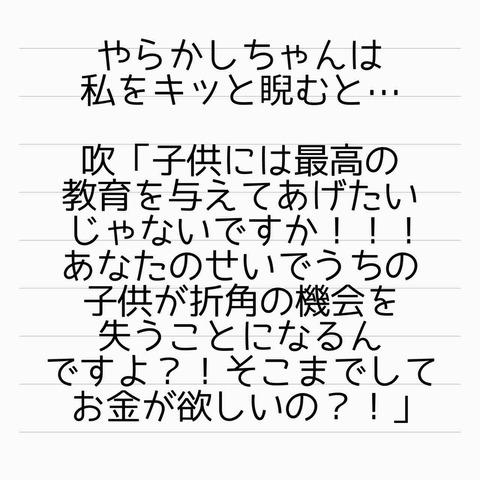 やらかしちゃんは
私をキッと睨むと…
吹「子供には最高の
教育を与えてあげたい
じゃないですか！！！
あなたのせいでうちの
子供が折角の機会を
失うことになるん
ですよ？！そこまでして
お金が欲しいの？！」